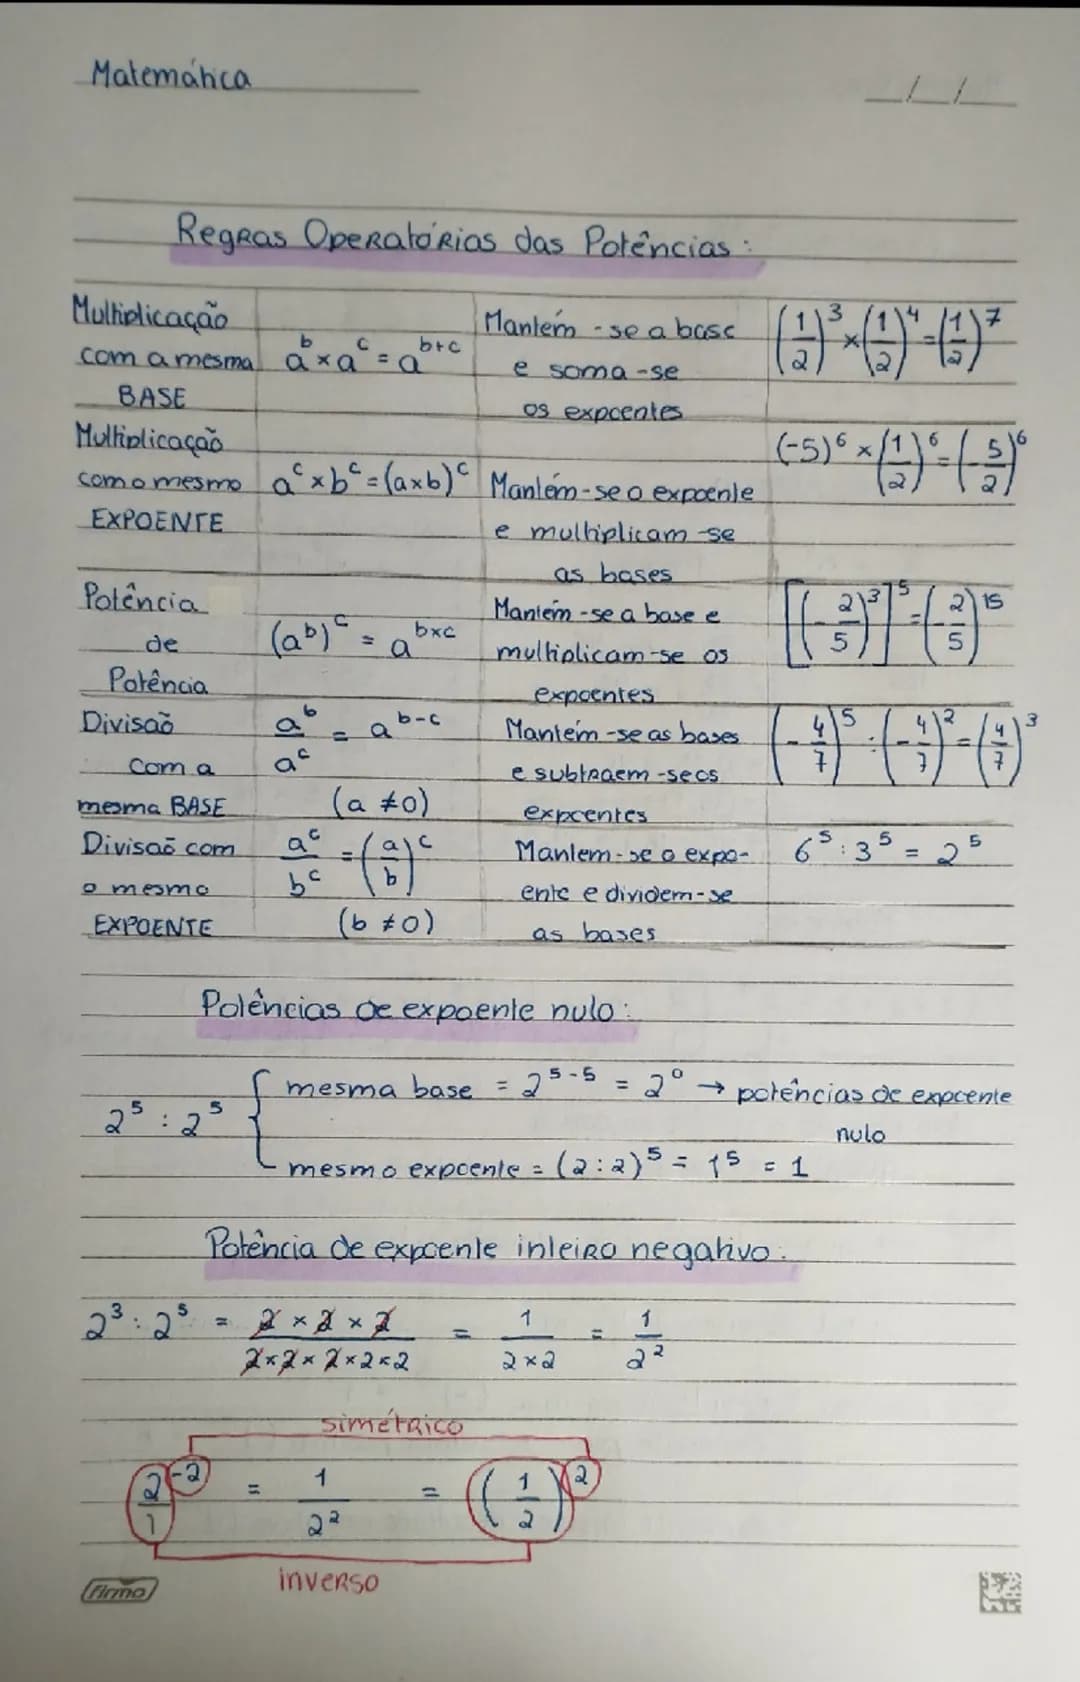 Matemática
_/_/_
Regras Operatórias das Potências:
Multiplicação com a mesma BASE | a^b × a^c = a^(b+c) | Mantém-se a base e soma-se os expoentes | (1/2)^3 × (1/2)^4 = (1/2)^7
Multiplicação com o mesmo EXPOENTE | a^c × b^c = (a×b)^c | Mantém-se o expoente e multiplicam-se as bases | (-5)^6 × (1/2)^6 = (-5/2)^6
Potência de Potência | (a^b)^c = a^(b×c) | Mantém-se a base e multiplicam-se os expoentes | [(-2/5)^3]^5 = (-2/5)^15
Divisão com a mesma BASE | a^b/a^c = a^(b-c) (a ≠ 0) | Mantém-se as bases e subtraem-se os expoentes | (-4/7)^5 : (-4/7)^2 = (4/7)^3
Divisão com o mesmo EXPOENTE | a^c/b^c = (a/b)^c (b ≠ 0) | Mantem-se o expo-ente e dividem-se as bases | 6^5 : 3^5 = 2^5
Potências de expoente nulo:
2^5 : 2^5 {
mesma base = 2^(5-5) = 2^0 → potências de expoente
nulo
mesmo expoente = (2:2)^5 = 1^5 = 1
Potência de expoente inteiro negativo:
2^3 : 2^5 = (2 × 2 × 2)/(2×2×2×2×2) = 1/(2×2) = 1/2^2
simétrico
(2/1)^-2 = 1/2^2 = (1/2)^2
inverso
firmo